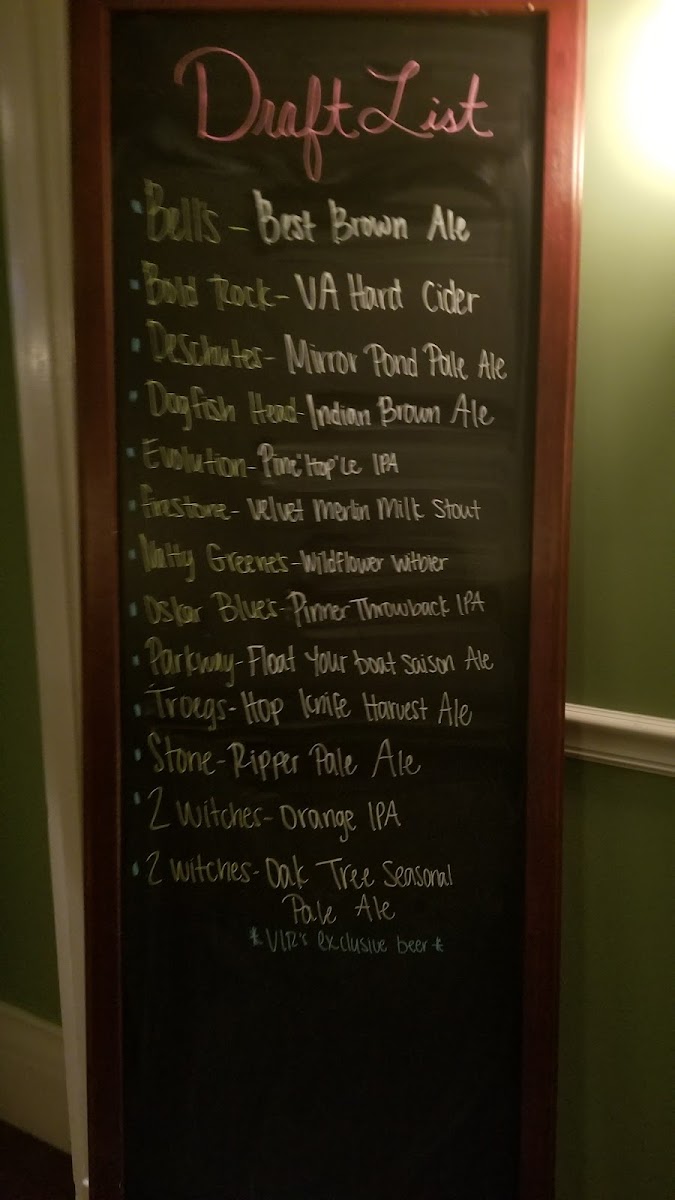 Draft List
Bell's - Best Brown Ale
Bold Rock - VA Hard Cider
Deschutes - Mirror Pond Pale Ale
Dogfish Head - Indian Brown Ale
Evolution - Pine'Hop'Le IPA
Firestone - Velvet Merlin Milk Stout
Natty Greene's - Wildflower Witbier
Oskar Blues - Pinner Throwback IPA
Parkway - Float Your boat Saison Ale
Troegs - Hop Knife Harvest Ale
Stone - Ripper Pale Ale
2 Witches - Orange IPA
2 Witches - Oak Tree Seasonal
Pale Ale
* exclusive beer *